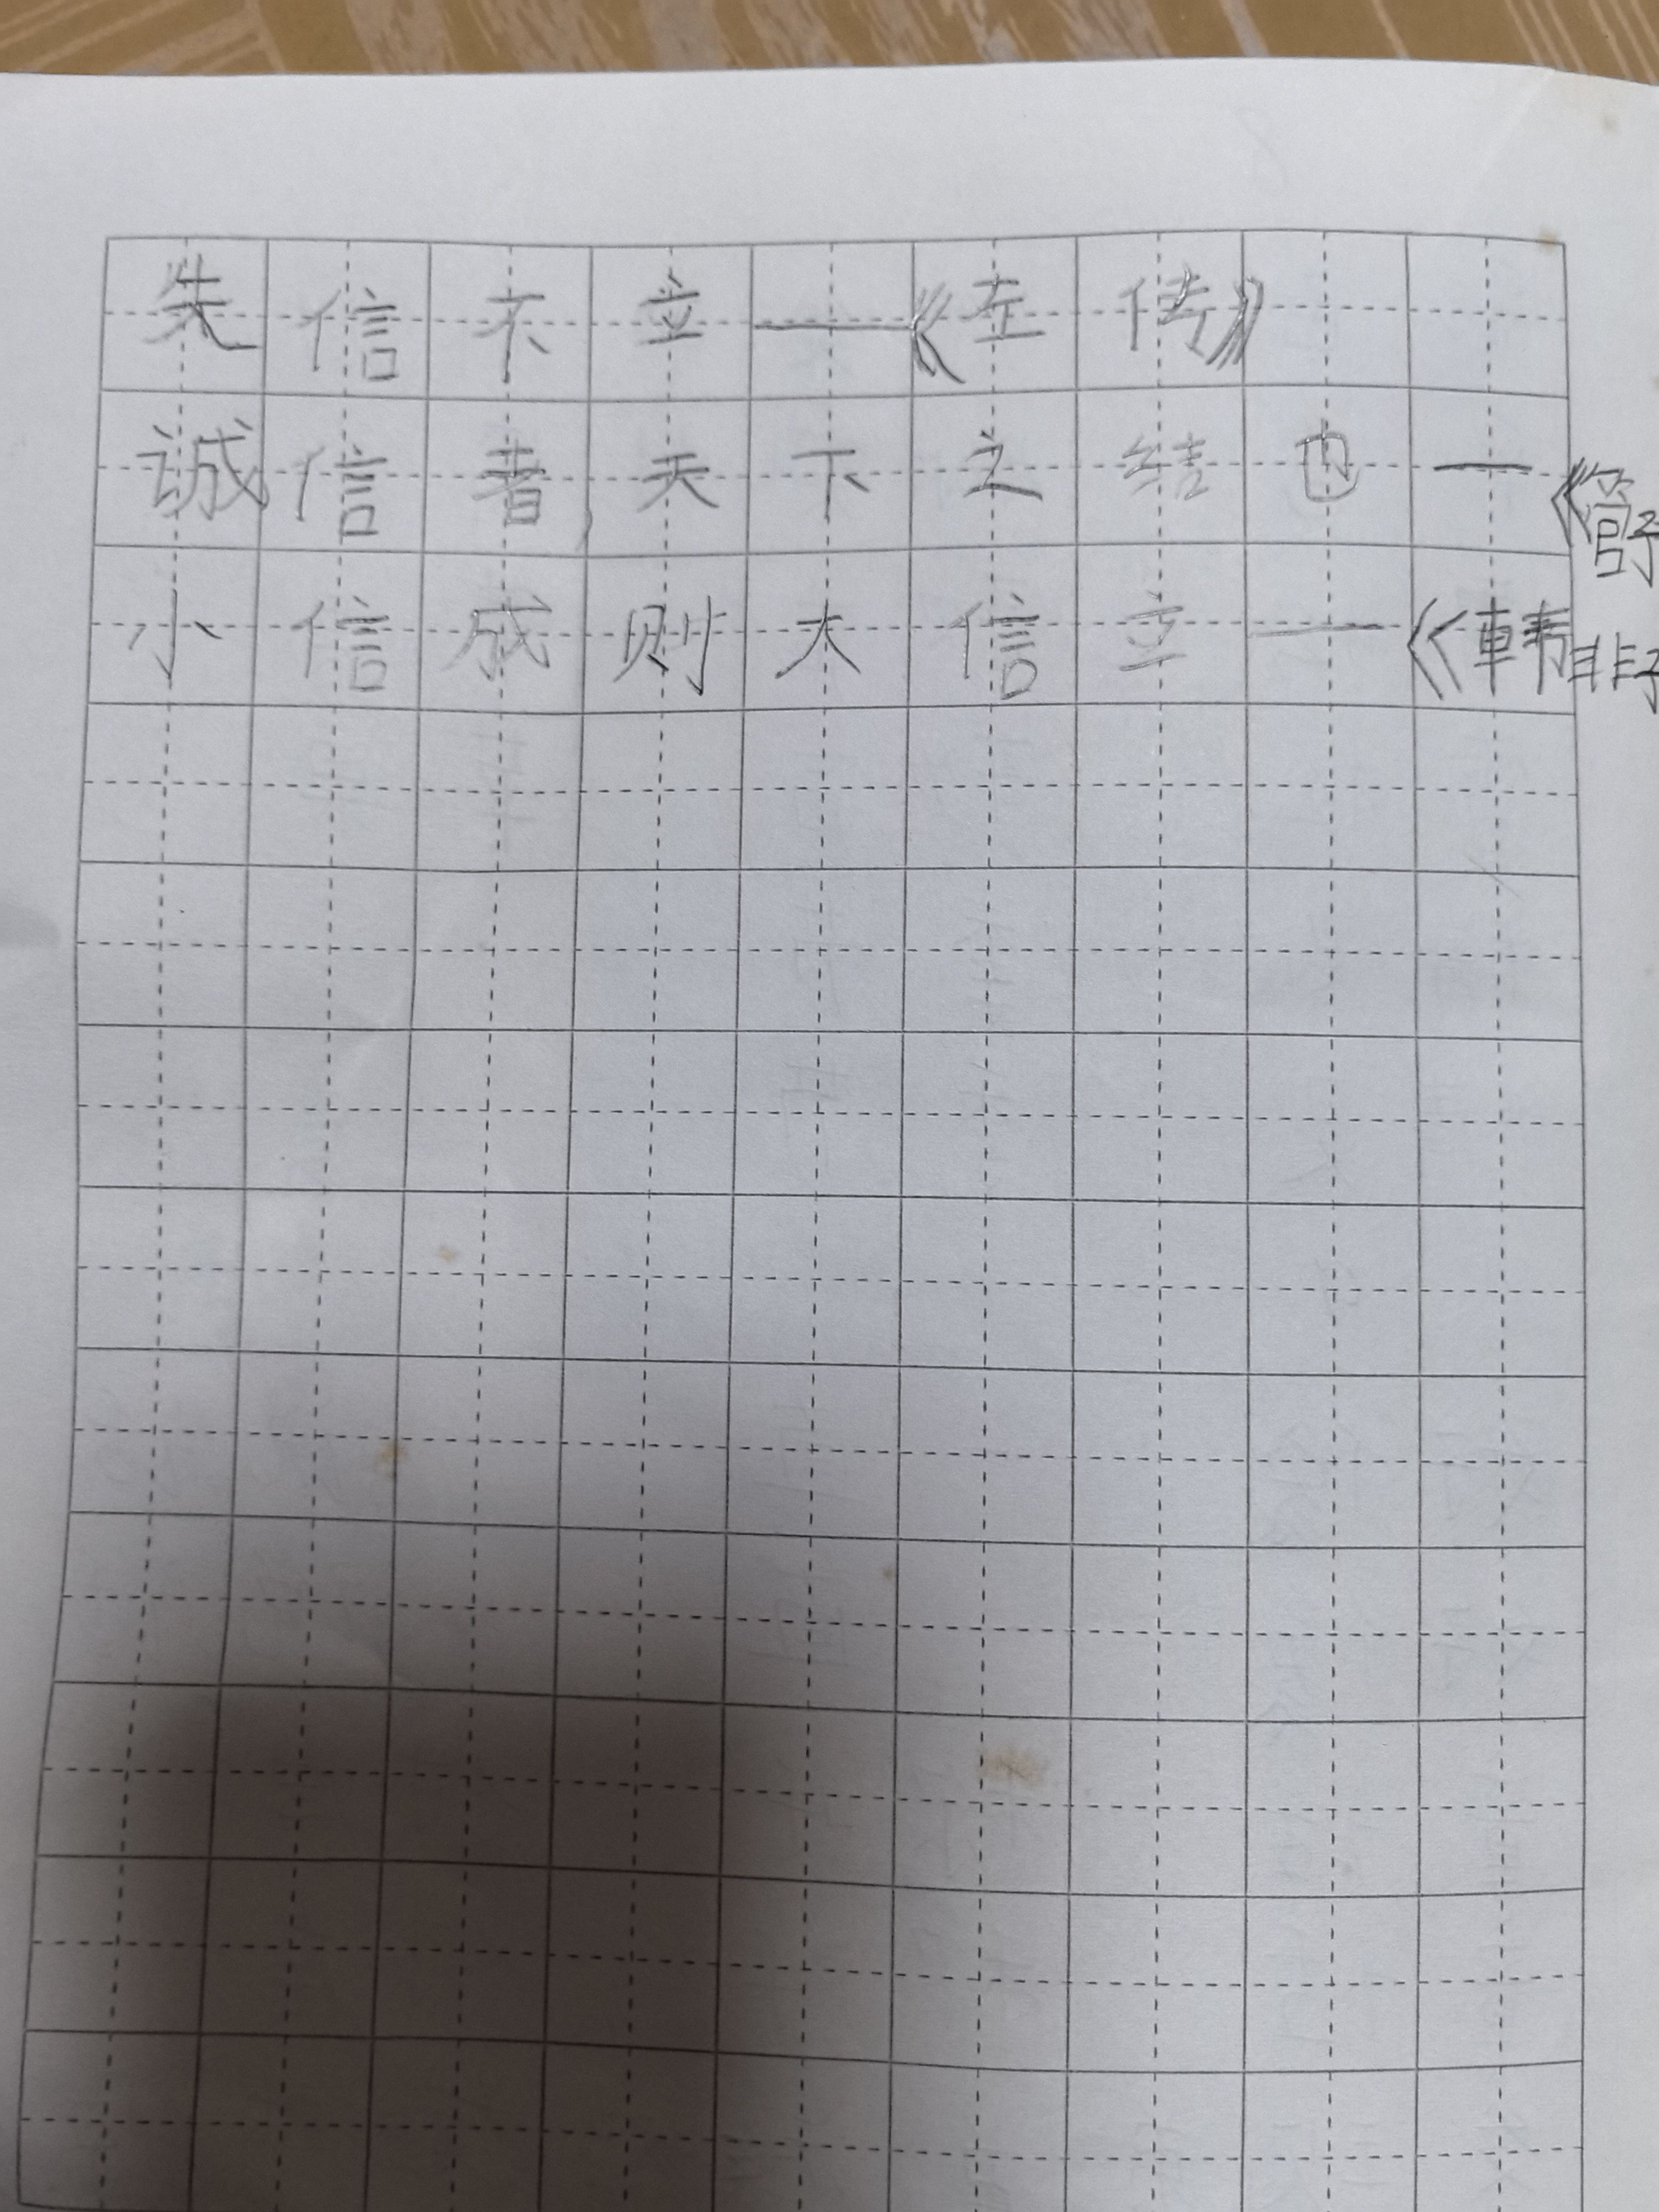 失信不立——《左传》
诚信者,天下之结也—《管子
小信成则大信立—《韩非子